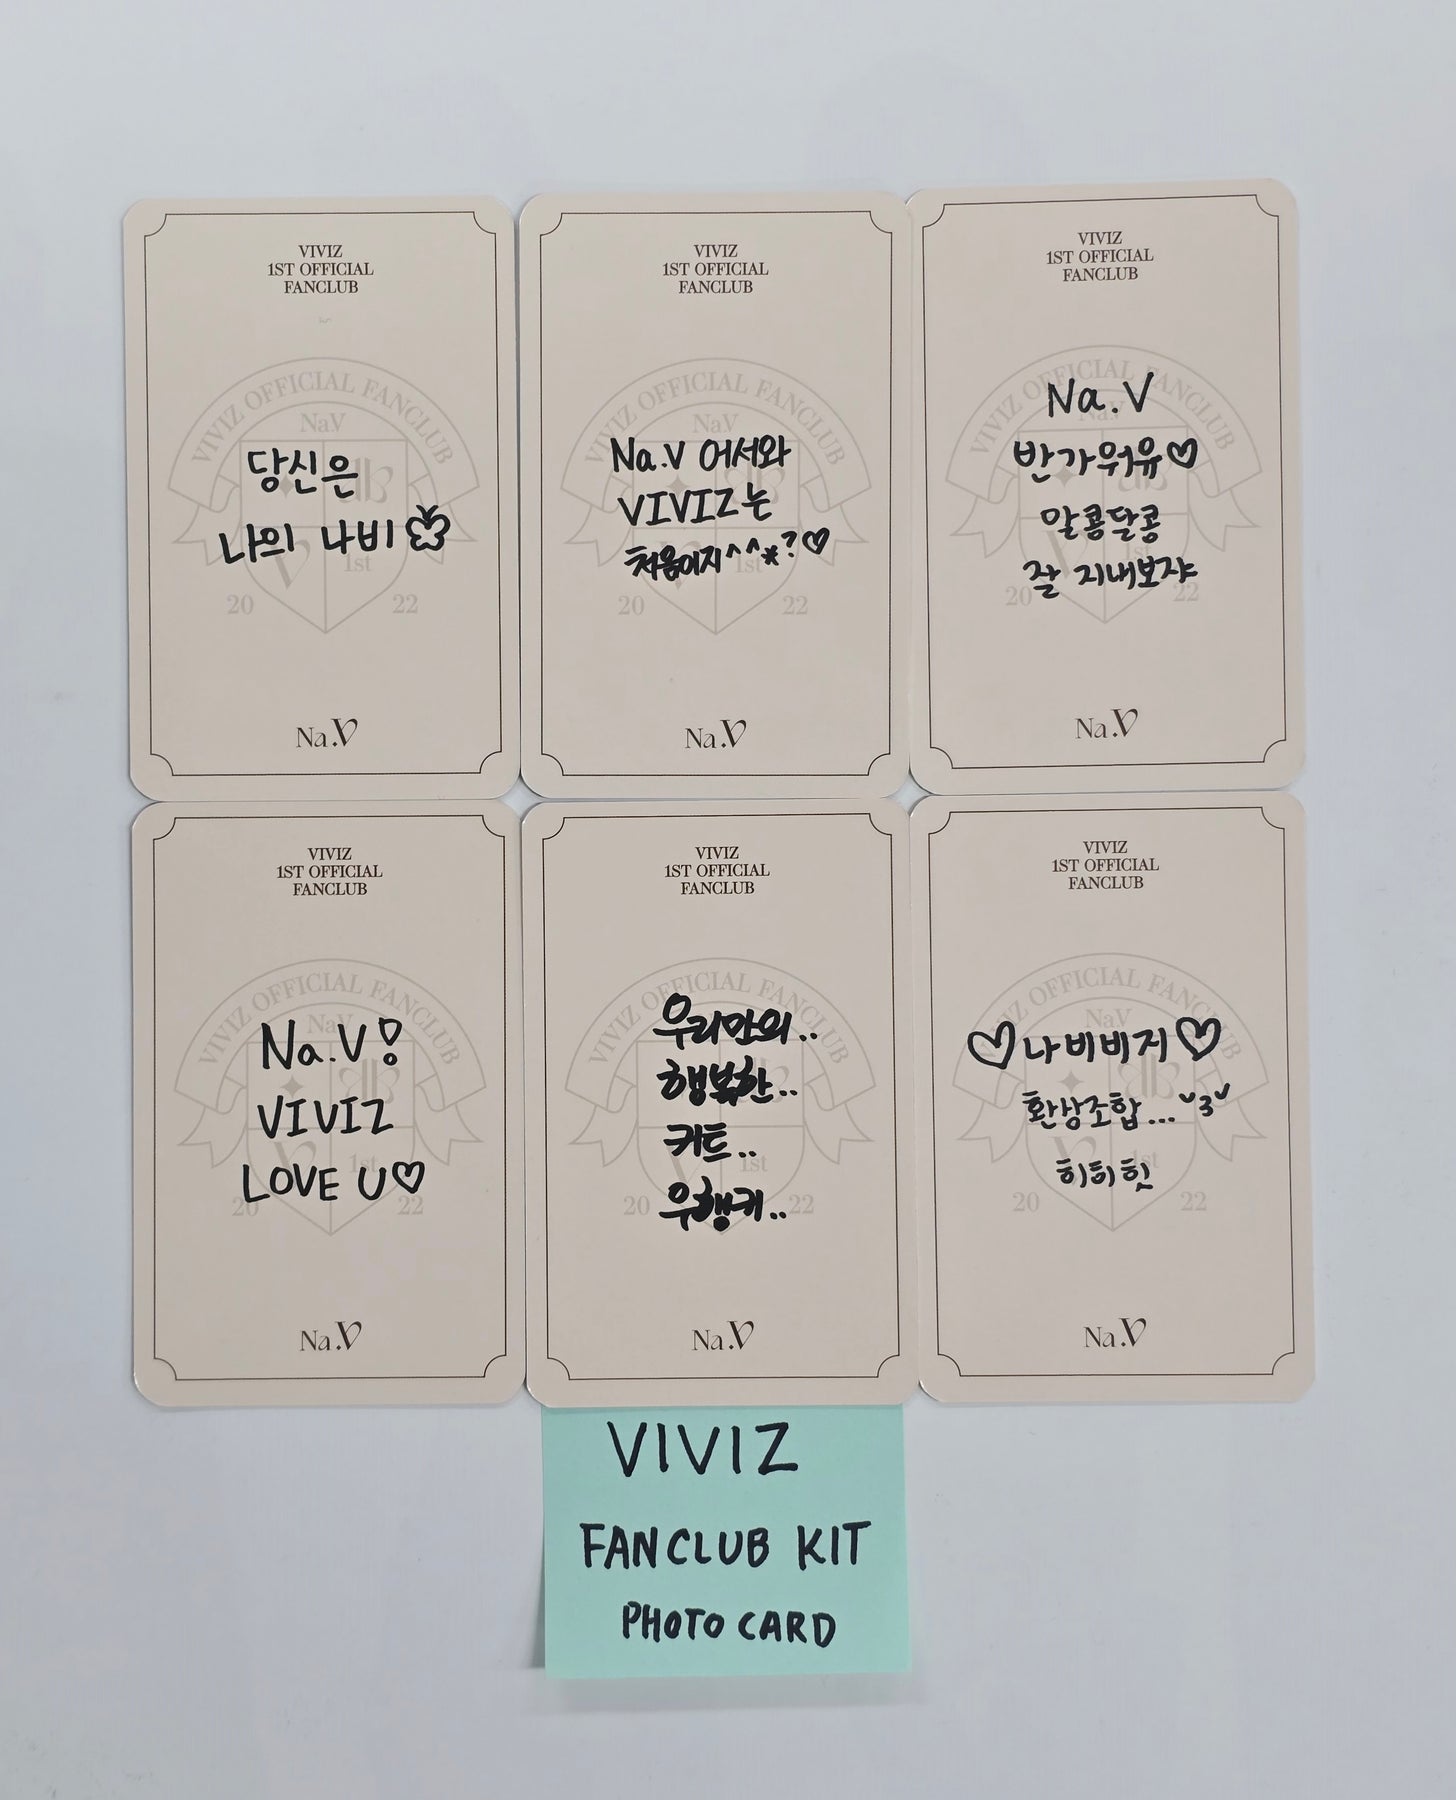 VIVIZ
1ST OFFICIAL
FANCLUB
VIVIZ OFFICIAL FANCLUB
NaV
당신은
나의 나비
1st
20 22
Na.V
VIVIZ
1ST OFFICIAL
FANCLUB
VIVIZ OFFICIAL FANCLUB
NaV
Na.V 어서와
VIVIZ는
처음이지^^*?♡
1st
20 22
Na.V
VIVIZ
1ST OFFICIAL
FANCLUB
VIVIZ OFFICIAL FANCLUB
NaV
Na.V
반가워유♡
알콩달콩
잘 지내보쟈
20 22
Na.V
VIVIZ
1ST OFFICIAL
FANCLUB
VIVIZ OFFICIAL FANCLUB
NaV
Na.V!
VIVIZ
LOVE U♡
1st
20 22
Na.V
VIVIZ
1ST OFFICIAL
FANCLUB
VIVIZ OFFICIAL FANCLUB
우리만의..
행복한..
키트..
우행키..
1st
20 22
Na.V
VIVIZ
1ST OFFICIAL
FANCLUB
VIVIZ OFFICIAL FANCLUB
NaV
♡나비비지♡
환상조합...ˇ3ˇ
히히힛
1st
20 22
Na.V
VIVIZ
FANCLUB KIT
PHOTO CARD